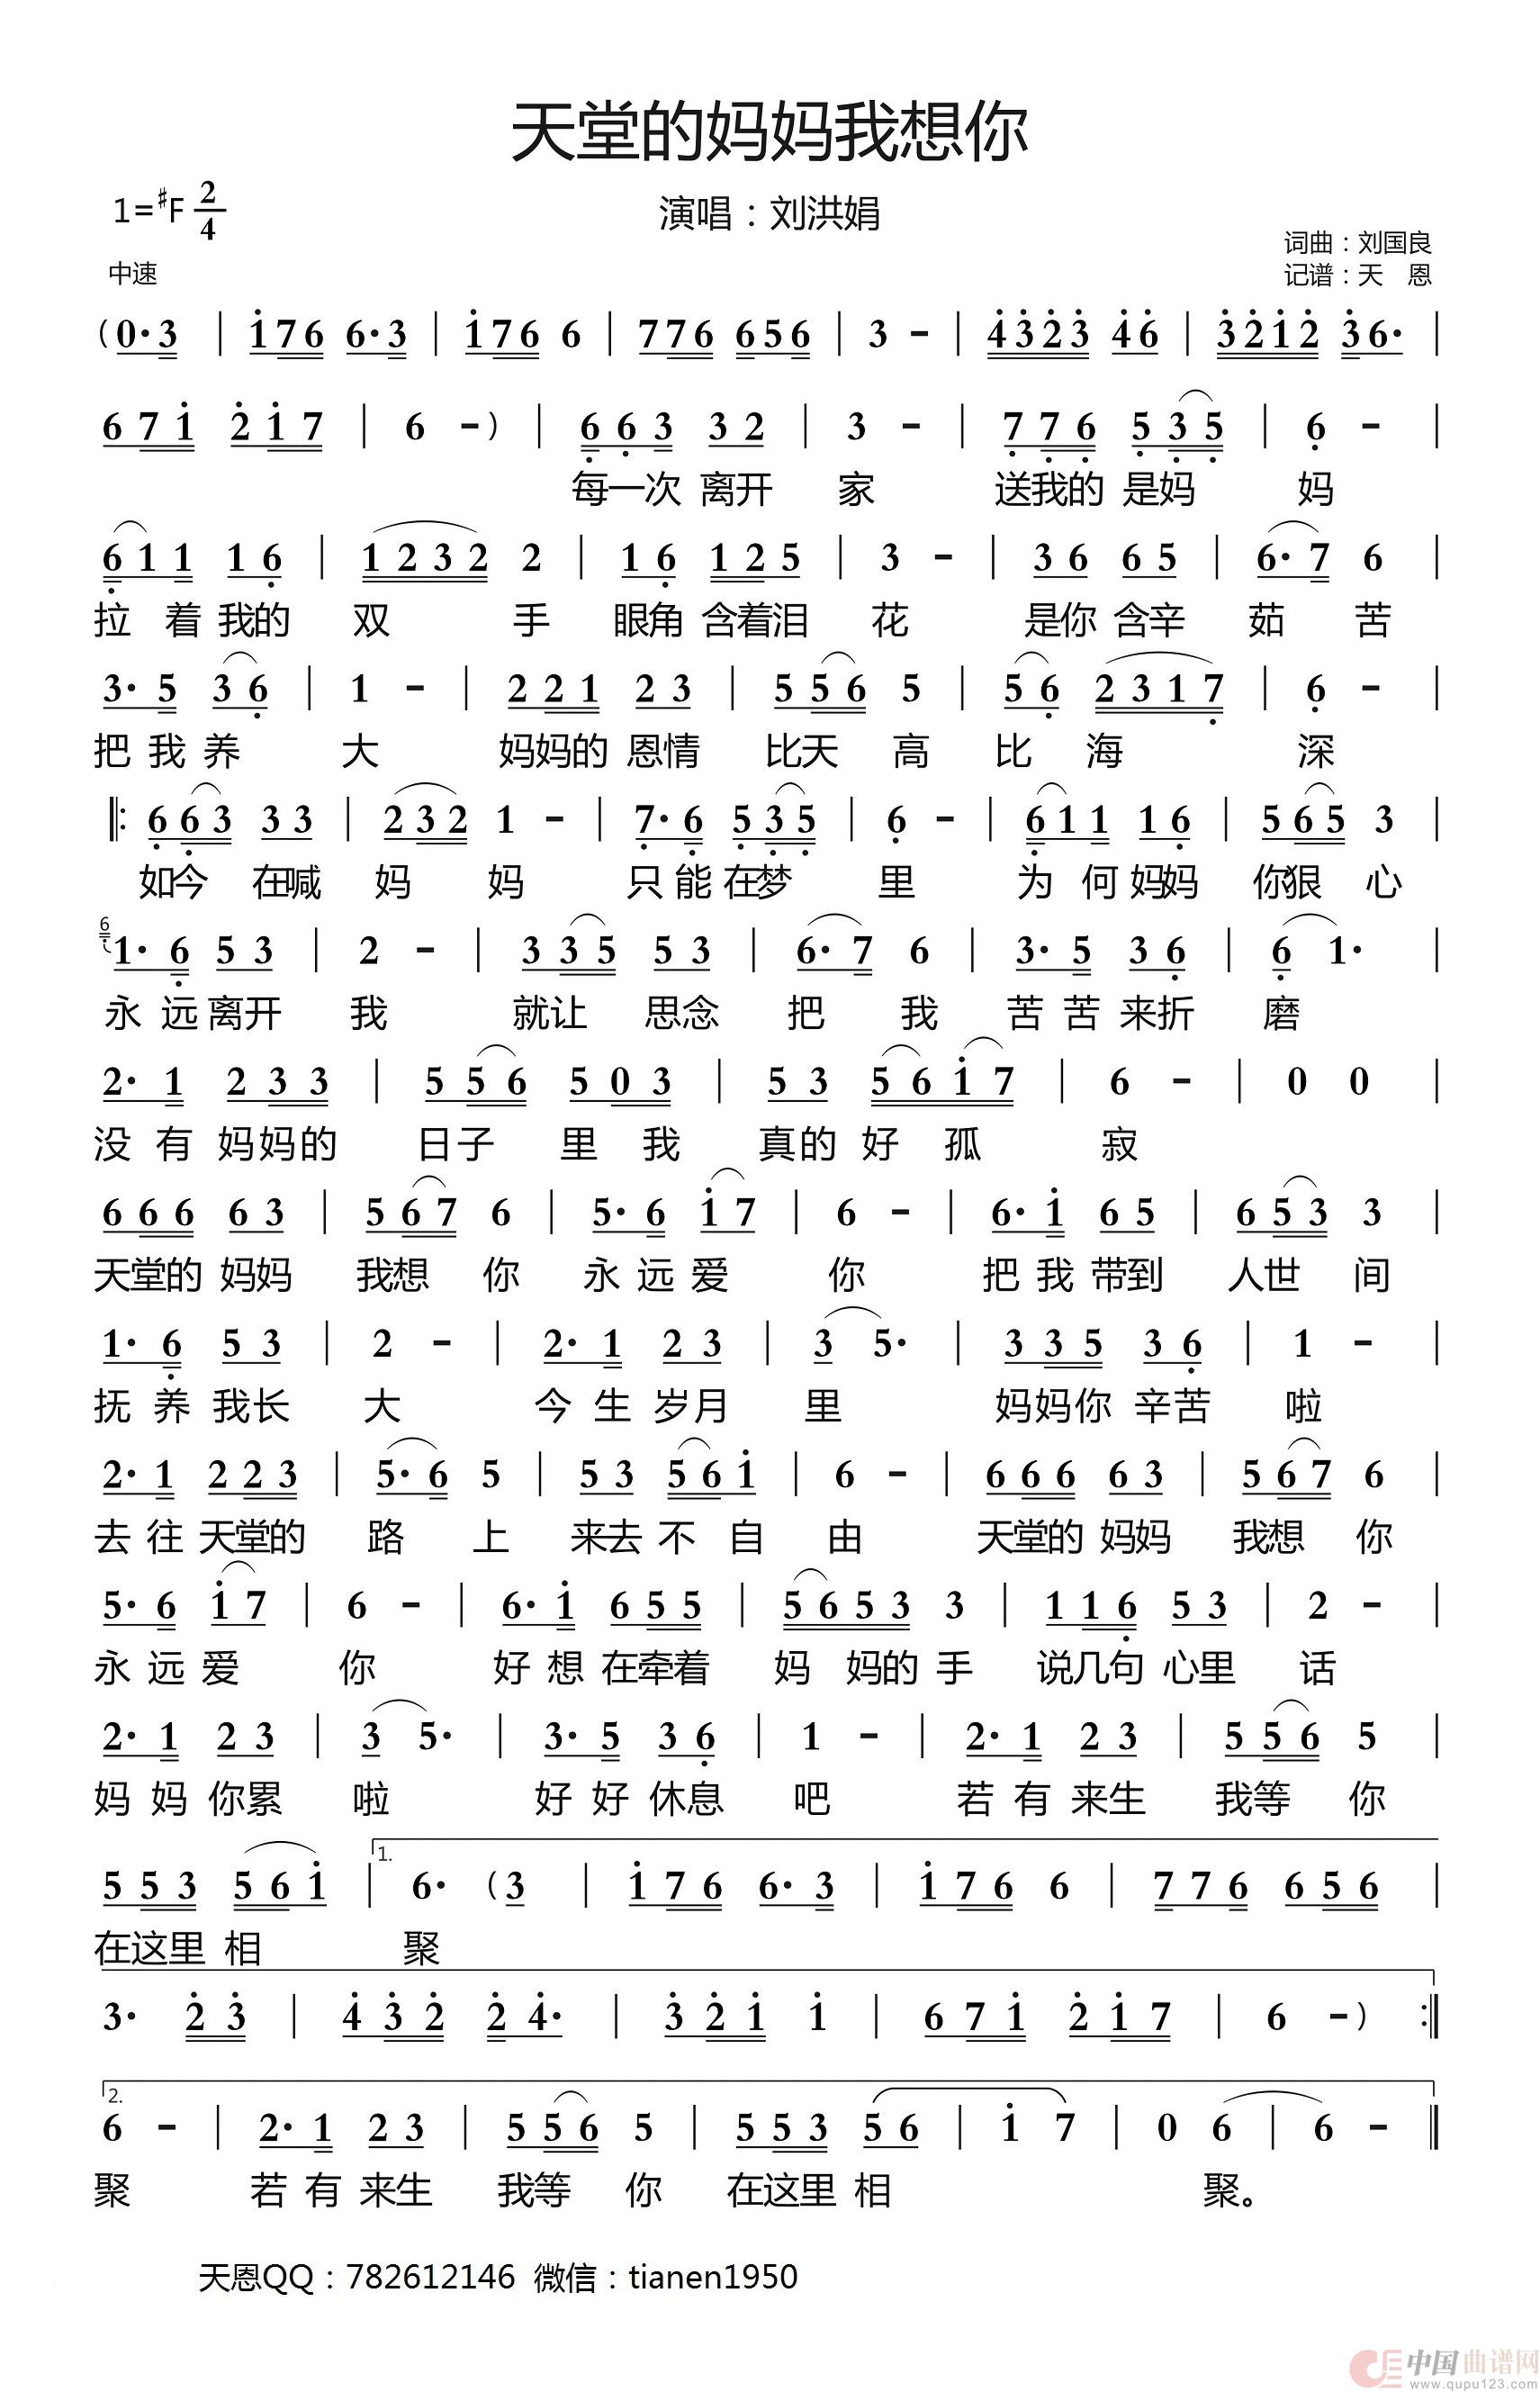 天堂的妈妈我想你
1=♯F 2/4
演唱：刘洪娟
词曲：刘国良
中速
记谱：天 恩
(0·3 | i76 6·3 | i76 6 | 776 656 | 3 - | 4̇3̇2̇3̇ 4̇6̇ | 3̇2̇i2̇ 3̇6· |
67i 2̇i7 | 6 -) | 6̣6̣3 32 | 3 - | 7̣7̣6̣ 5̣3̣5̣ | 6̣ - |
每一次 离开 家 送我的 是妈 妈
6̣11 16̣ | 1232 2 | 16̣ 125 | 3 - | 36 65 | 6·7 6 |
拉 着 我的 双 手 眼角 含着泪 花 是你 含辛 茹 苦
3·5 36̣ | 1 - | 221 23 | 556 5 | 56̣ 2317̣ | 6̣ - |
把 我 养 大 妈妈的 恩情 比天 高 比 海 深
‖: 6̣6̣3 33 | 232 1 - | 7̣·6̣ 5̣3̣5̣ | 6̣ - | 6̣11 16̣ | 565 3 |
如今 在喊 妈 妈 只 能 在梦 里 为 何 妈妈 你狠 心
6 1·6̣ 53 | 2 - | 335 53 | 6·7 6 | 3·5 36̣ | 6̣ 1· |
永 远 离开 我 就让 思念 把 我 苦 苦 来折 磨
2·1 233 | 556 503 | 53 56i7 | 6 - | 0 0 |
没 有 妈妈的 日子 里 我 真的 好 孤 寂
666 63 | 567 6 | 5·6 i7 | 6 - | 6·i 65 | 653 3 |
天堂的 妈妈 我想 你 永 远 爱 你 把 我 带到 人世 间
1·6̣ 53 | 2 - | 2·1 23 | 3 5· | 335 36̣ | 1 - |
抚 养 我长 大 今 生 岁月 里 妈妈你 辛苦 啦
2·1 223 | 5·6 5 | 53 56i | 6 - | 666 63 | 567 6 |
去 往 天堂的 路 上 来去 不 自 由 天堂的 妈妈 我想 你
5·6 i7 | 6 - | 6·i 655 | 5653 3 | 116̣ 53 | 2 - |
永 远 爱 你 好 想 在牵着 妈 妈的 手 说几句 心里 话
2·1 23 | 3 5· | 3·5 36̣ | 1 - | 2·1 23 | 556 5 |
妈 妈 你累 啦 好 好 休息 吧 若 有 来生 我等 你
553 56i | 1. 6· (3 | i76 6·3 | i76 6 | 776 656 |
在这里 相 聚
3· 2̇3̇ | 4̇3̇2̇ 2̇4̇· | 3̇2̇i i | 67i 2̇i7 | 6 -) :‖
2. 6 - | 2·1 23 | 556 5 | 553 56 | i 7 | 0 6 | 6 - ‖
聚 若 有 来生 我等 你 在这里 相 聚。
天恩QQ：782612146 微信：tianen1950
中国曲谱网
www.qupu123.com